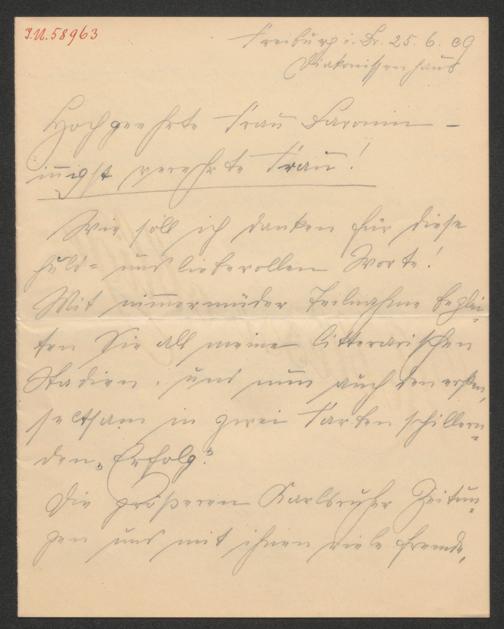 I.N. 58963
Freiburg i. Br. 25. 6. 09
Diakonissenhaus
Hochgeehrte Frau Baronin –
innigst verehrte Frau!
Wie soll ich danken für diese
huld= und liebevollen Worte!
Mit nimmermüder Teilnahme beglei=
ten Sie all meine litterarischen
Stadien, und nun auch den ersten,
seltsam in zwei Farben schillern=
den „Erfolg".
Die größeren Karlsruher Zeitun=
gen und mit ihnen viele fremde,